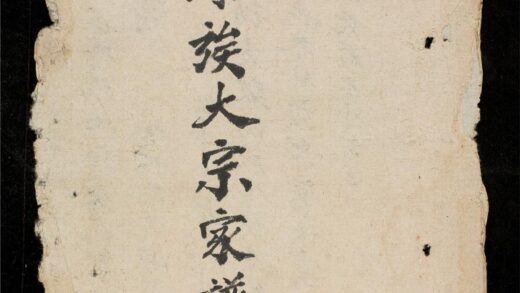 族大宗家譜